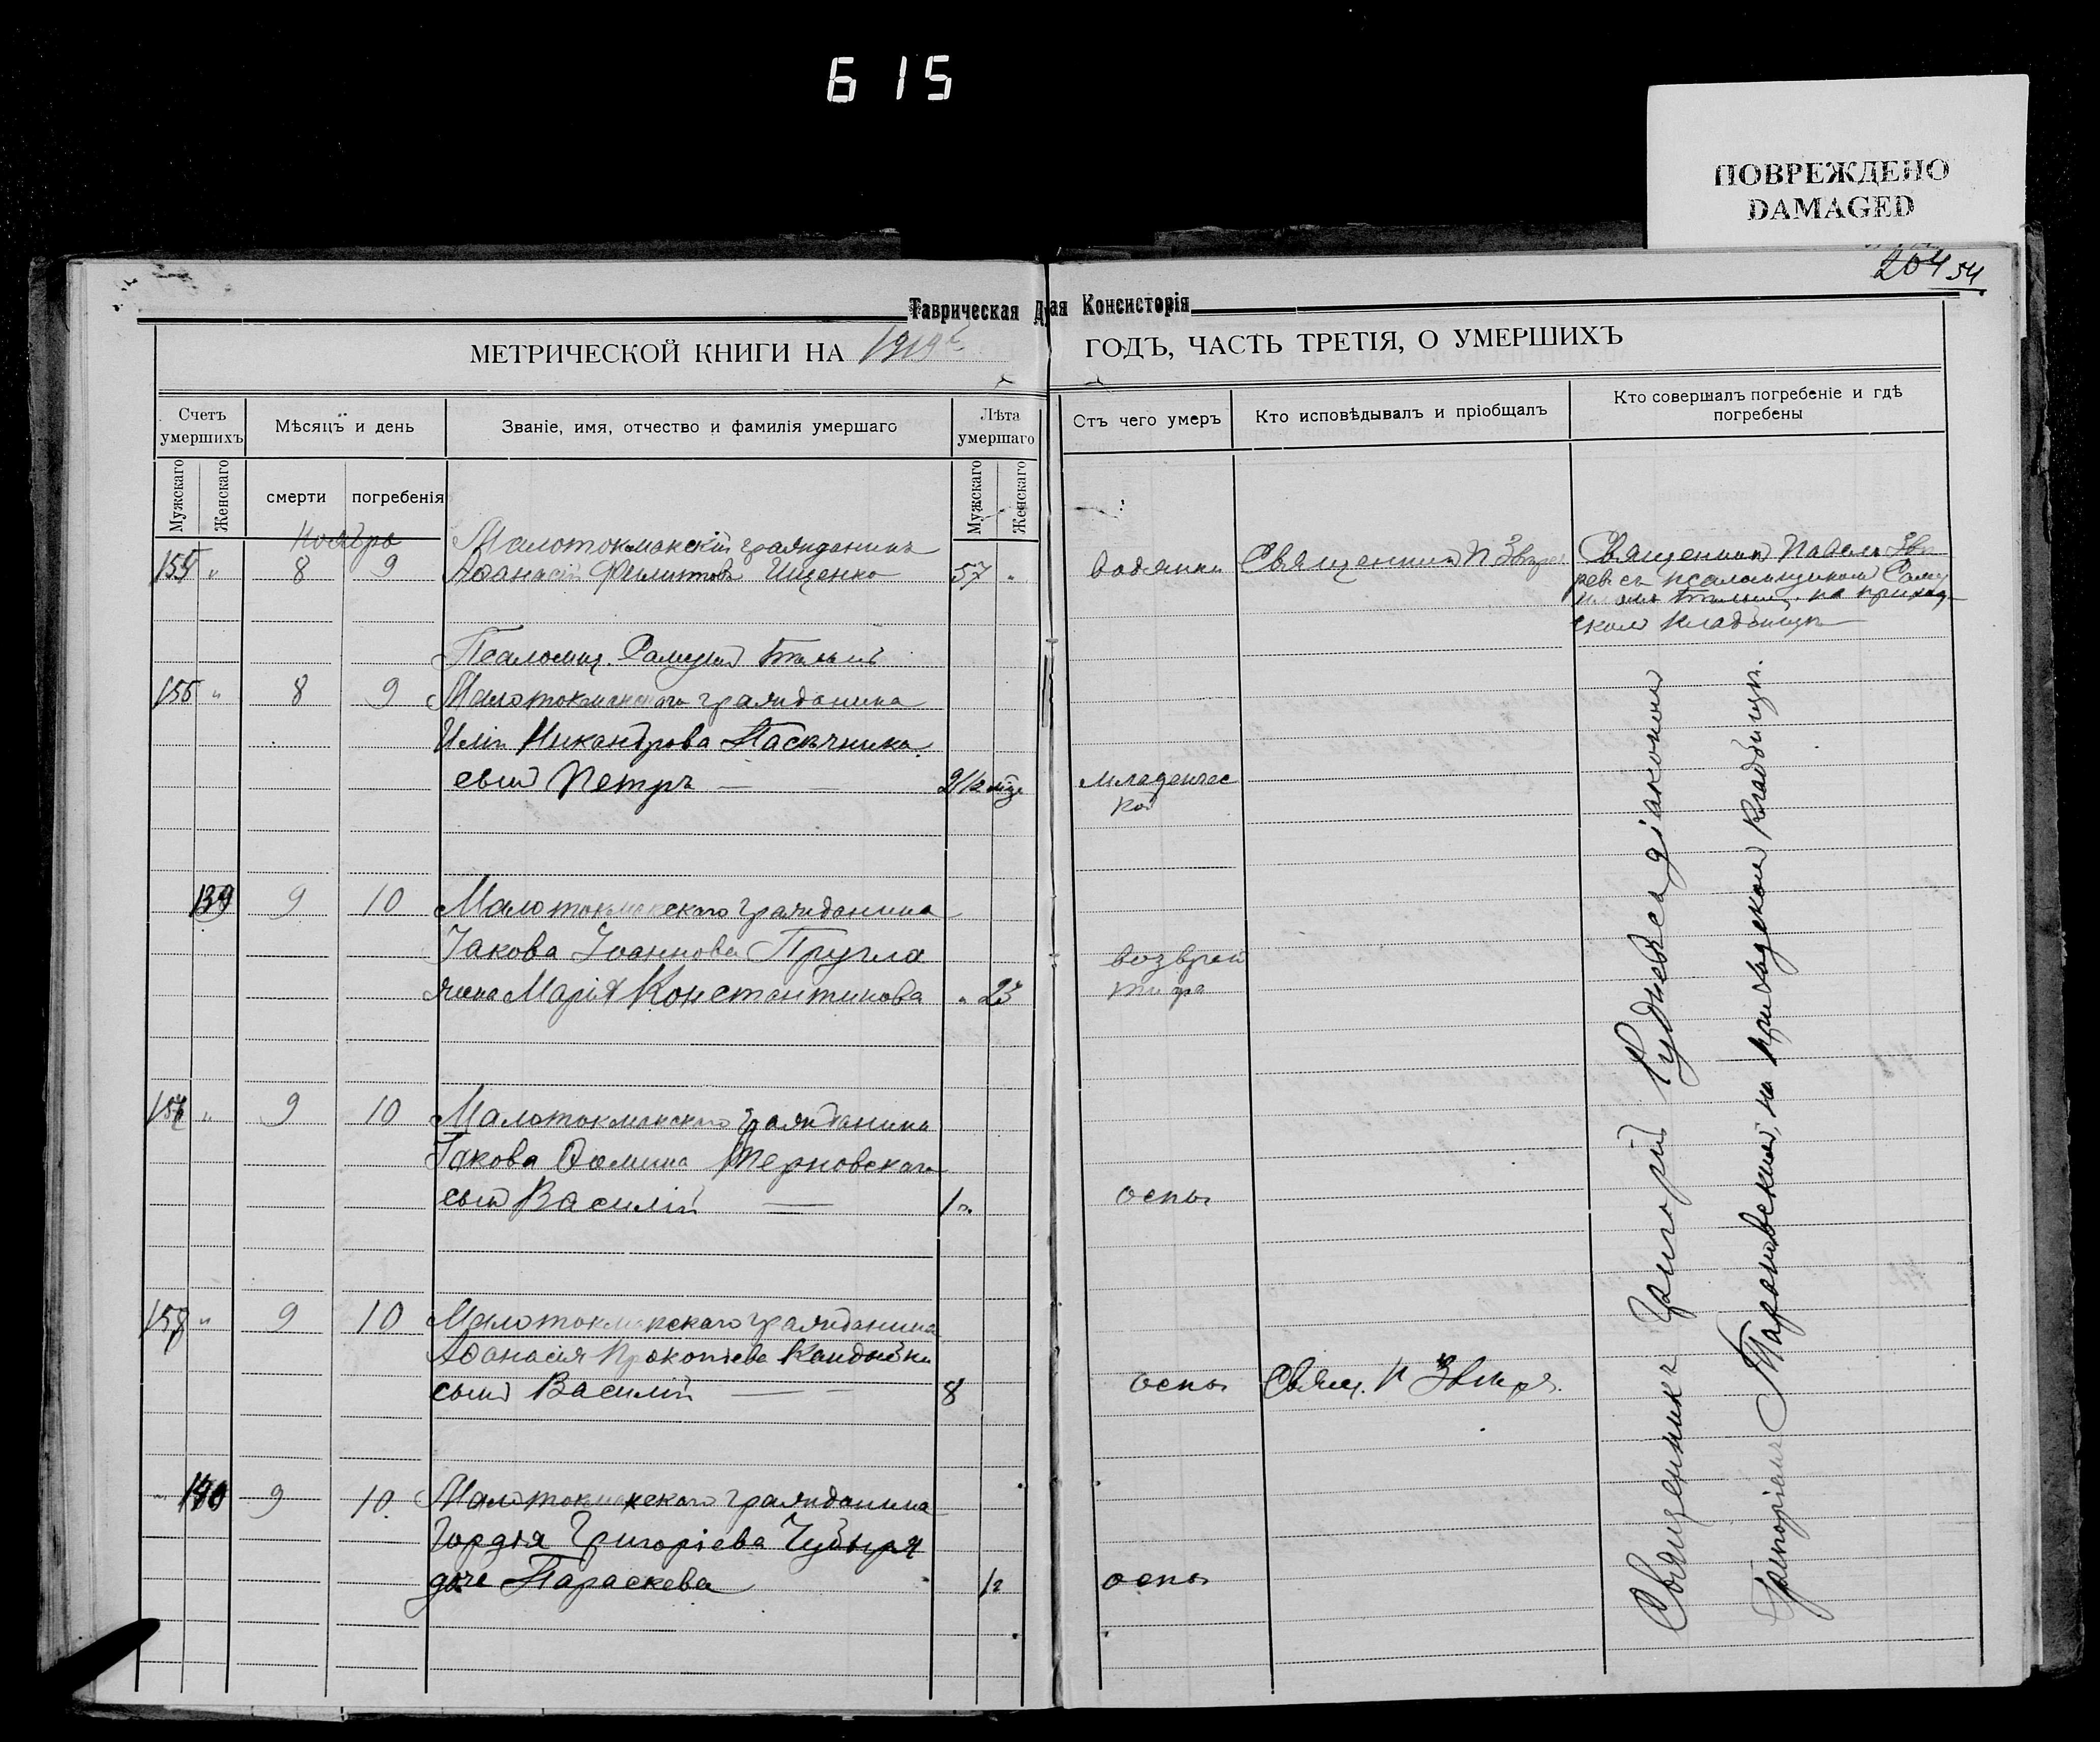 615
ПОВРЕЖДЕНО
DAMAGED
204 54
Таврическая Д
ая Консисторія
МЕТРИЧЕСКОЙ КНИГИ НА 1919
ГОДЪ, ЧАСТЬ ТРЕТІЯ, О УМЕРШИХЪ
Счетъ умершихъ
Мѣсяцъ и день
Званіе, имя, отчество и фамилія умершаго
Лѣта умершаго
Отъ чего умеръ
Кто исповѣдывалъ и пріобщалъ
Кто совершалъ погребеніе и гдѣ погребены
Мужскаго
Женскаго
смерти
погребенія
Мужскаго
Женскаго
Ноябрь
Малотокмакскій гражданинъ
155 " 8 9 Аѳанасій Ищенко 57 " водянки Священникъ П Звѣрев
Священникъ Павелъ Звѣ
ревъ съ псаломщикомъ
на приход
скомъ кладбищѣ
Псаломщ. Самуилъ
156 " 8 9 Малотокмакскаго гражданина
Иліи Никандрова Пасѣчника
сынъ Петръ 2 1/2 мѣс младенчес
кой
139 9 10 Малотокмакскаго гражданина
Іакова Іоаннова Пругла
жена Марія Константинова " 23
возврат
тифа
157 " 9 10 Малотокмакскаго гражданина
Іакова Ѳомина Терновскаго
сынъ Василій 1 г. оспы
158 " 9 10 Малотокмакскаго гражданина
Аѳанасія Прокопіева
сынъ Василій 8 оспы Свящ. П Звѣрев.
" 140 9 10. Малотокмакскаго гражданина
Гордія Григоріева Чубыря
дочь Параскева 1 г оспы
Священникъ Григорій Рудневъ съ діакономъ
Григоріемъ Тарановскимъ, на приходскомъ кладбищѣ.